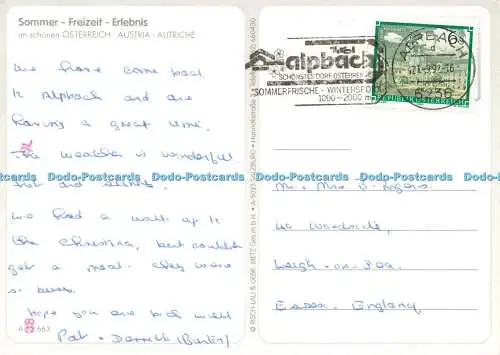 Sommer - Freizeit - Erlebnis
im schönen ÖSTERREICH AUSTRIA - AUTRICHE
We have come back
to Alpbach and are
having a great time.
The weather is wonderful
hot and
We had a walk up to
the but couldn't
get a meal. They were
so busy.
Hope you are both well
Pat + Derrick (Burton)
Tirol
alpbach
SCHÖNSTES DORF ÖSTERREICHS
SOMMERFRISCHE - WINTERSPORT
1000-2000 m
ALPBACH
6236
6
REPUBLIK ÖSTERREICH
Mr. Mrs Rogers
Woodside,
Leigh-on-Sea
Essex England
Dodo-Postcards Dodo-Postcards Dodo-Postcards Dodo-Postcards Dodo-Postcards Dodo-Postcards
Dodo-Postcards Dodo-Postcards Dodo-Postcards Dodo-Postcards Dodo-Postcards Dodo-Postcards